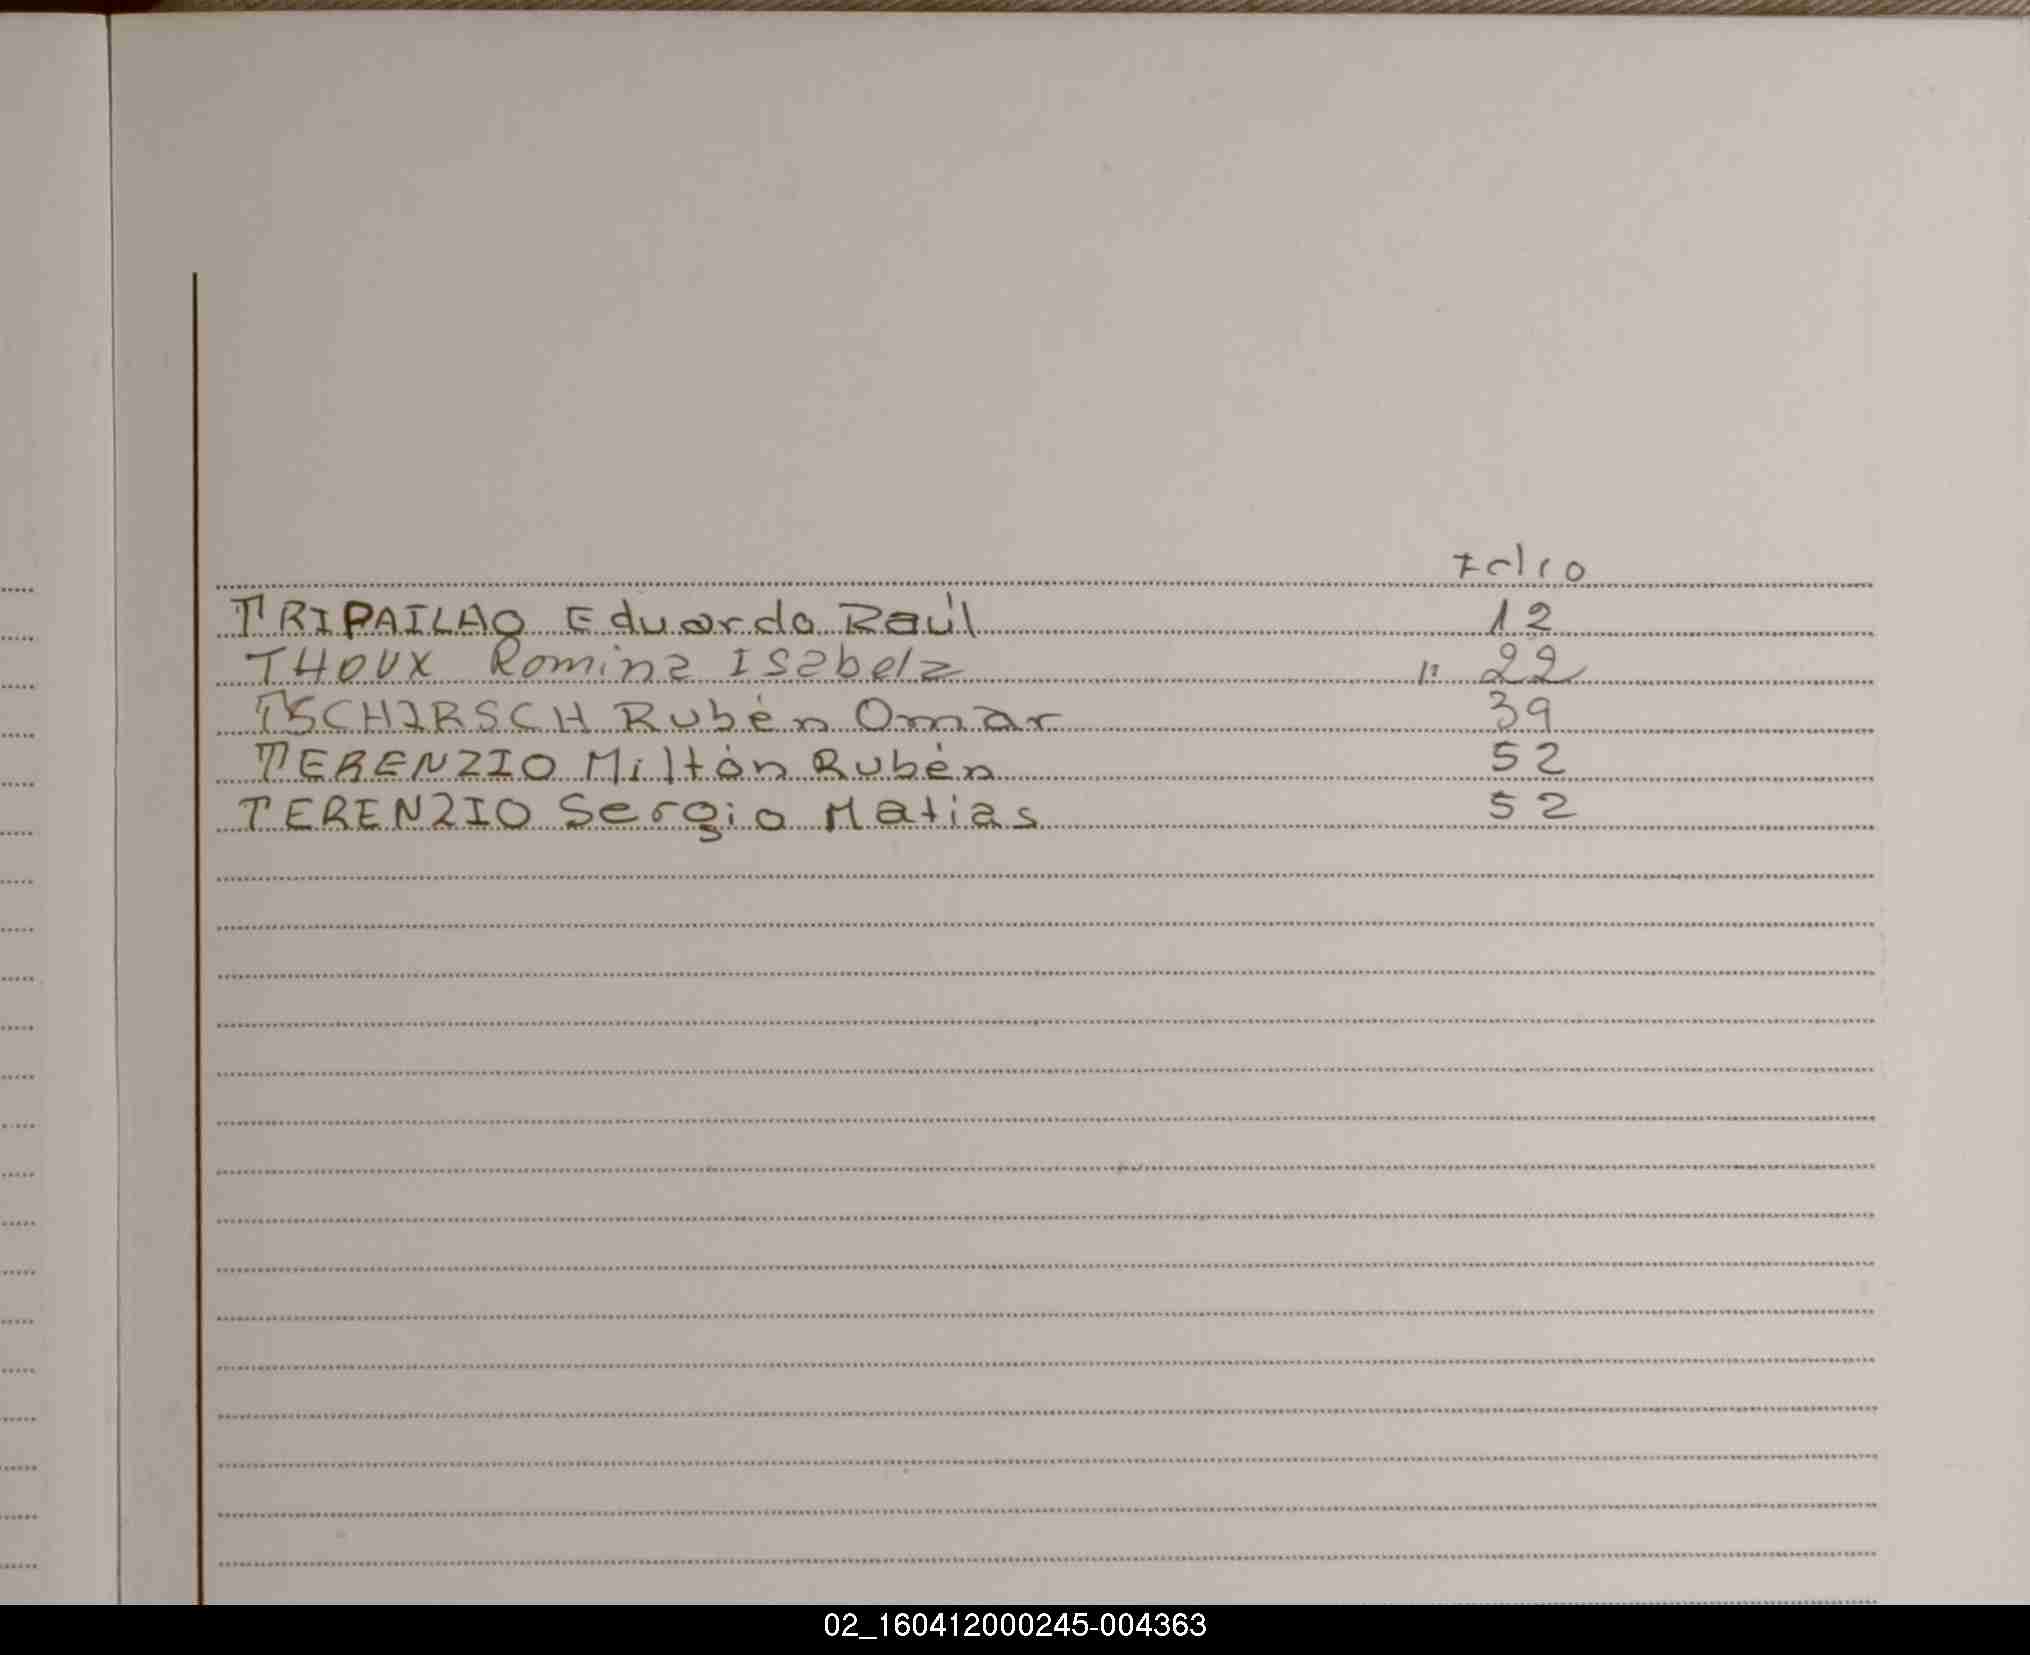 Folio
TRIPAILAO Eduardo Raúl 12
THOUX Romina Isabela " 22
TSCHIRSCH Rubén Omar 39
TERENZIO Miltón Rubén 52
TERENZIO Sergio Matias 52
02_160412000245-004363